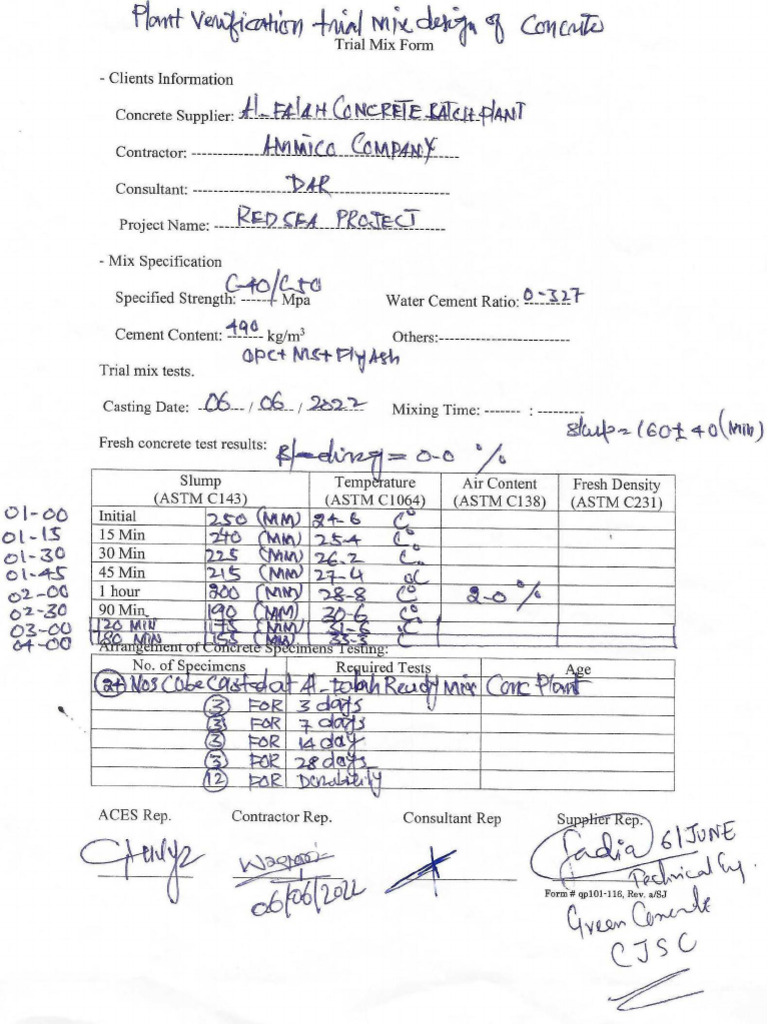 Plant Verification trial mix design of Concrete
Trial Mix Form
- Clients Information
Concrete Supplier: Al-FALAH CONCRETE BATCH PLANT
Contractor: AMMICO COMPANY
Consultant: DAR
Project Name: RED SEA PROJECT
- Mix Specification
C-40/C50
Specified Strength: ------- Mpa Water Cement Ratio: 0-327
Cement Content: 490 kg/m³ Others:--------------------------
OPC+ MS+ Fly Ash
Trial mix tests.
Casting Date: 06 / 06 / 2022 Mixing Time: ------- : ---------
Slump = 160± 40 (MM)
Fresh concrete test results: Bleeding = 0-0 %
Slump (ASTM C143) Temperature (ASTM C1064) Air Content (ASTM C138) Fresh Density (ASTM C231)
01-00 Initial 250 (MM) 24-6 C°
01-15 15 Min 240 (MM) 25-4 C°
01-30 30 Min 225 (MM) 26-2 C°
01-45 45 Min 215 (MM) 27-4 °C
02-00 1 hour 200 (MM) 28-8 C° 2-0 %
02-30 90 Min. 190 (MM) 30-6 C°
03-00 120 MIN 175 (MM) 31-5 °C
04-00 180 MIN 155 (MM) 33-3 C°
Arrangement of Concrete Specimens Testing:
No. of Specimens Required Tests Age
24 Nos Cube Casted at Al-falah Ready Mix Conc Plant
3 FOR 3 days
3 FOR 7 days
3 FOR 14 day
3 FOR 28 days
12 FOR Durability
ACES Rep. Contractor Rep. Consultant Rep Supplier Rep.
Waqas
06/06/2022
Sadia 6/JUNE
Technical Eng.
Form # qp101-116, Rev. a/SJ
Green Concrete
CJSC